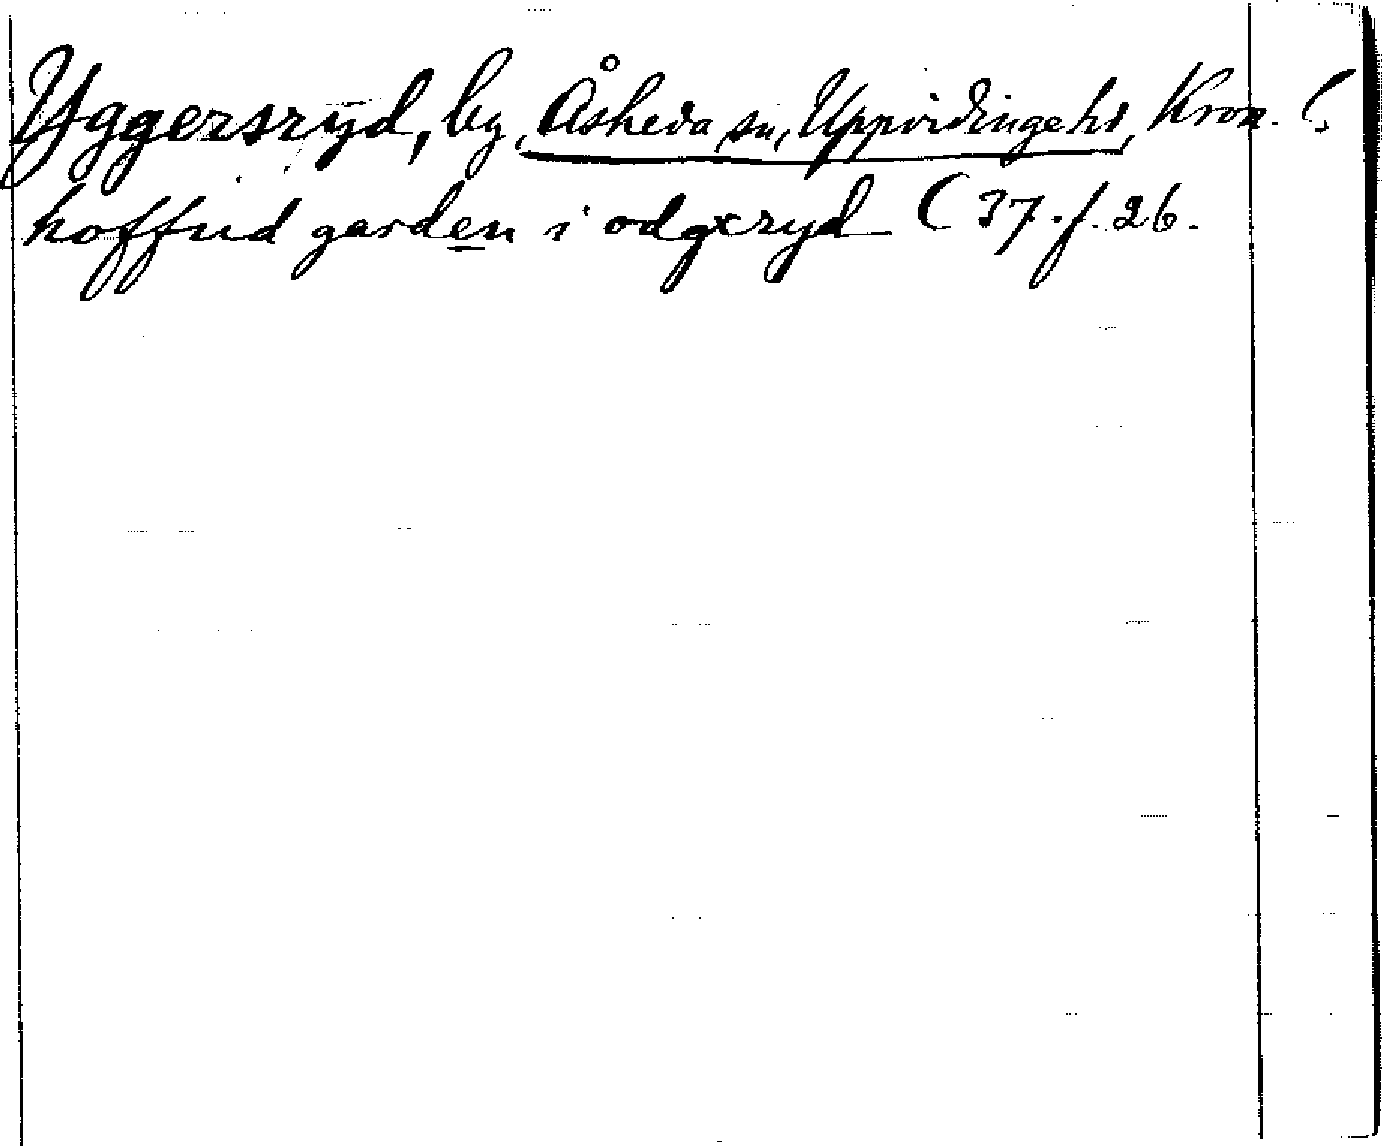 Yggersryd, by, Åsheda sn, Uppvidinge hd, Kron. l.
hoffuid garden i odgxryd C 37. f. 26.